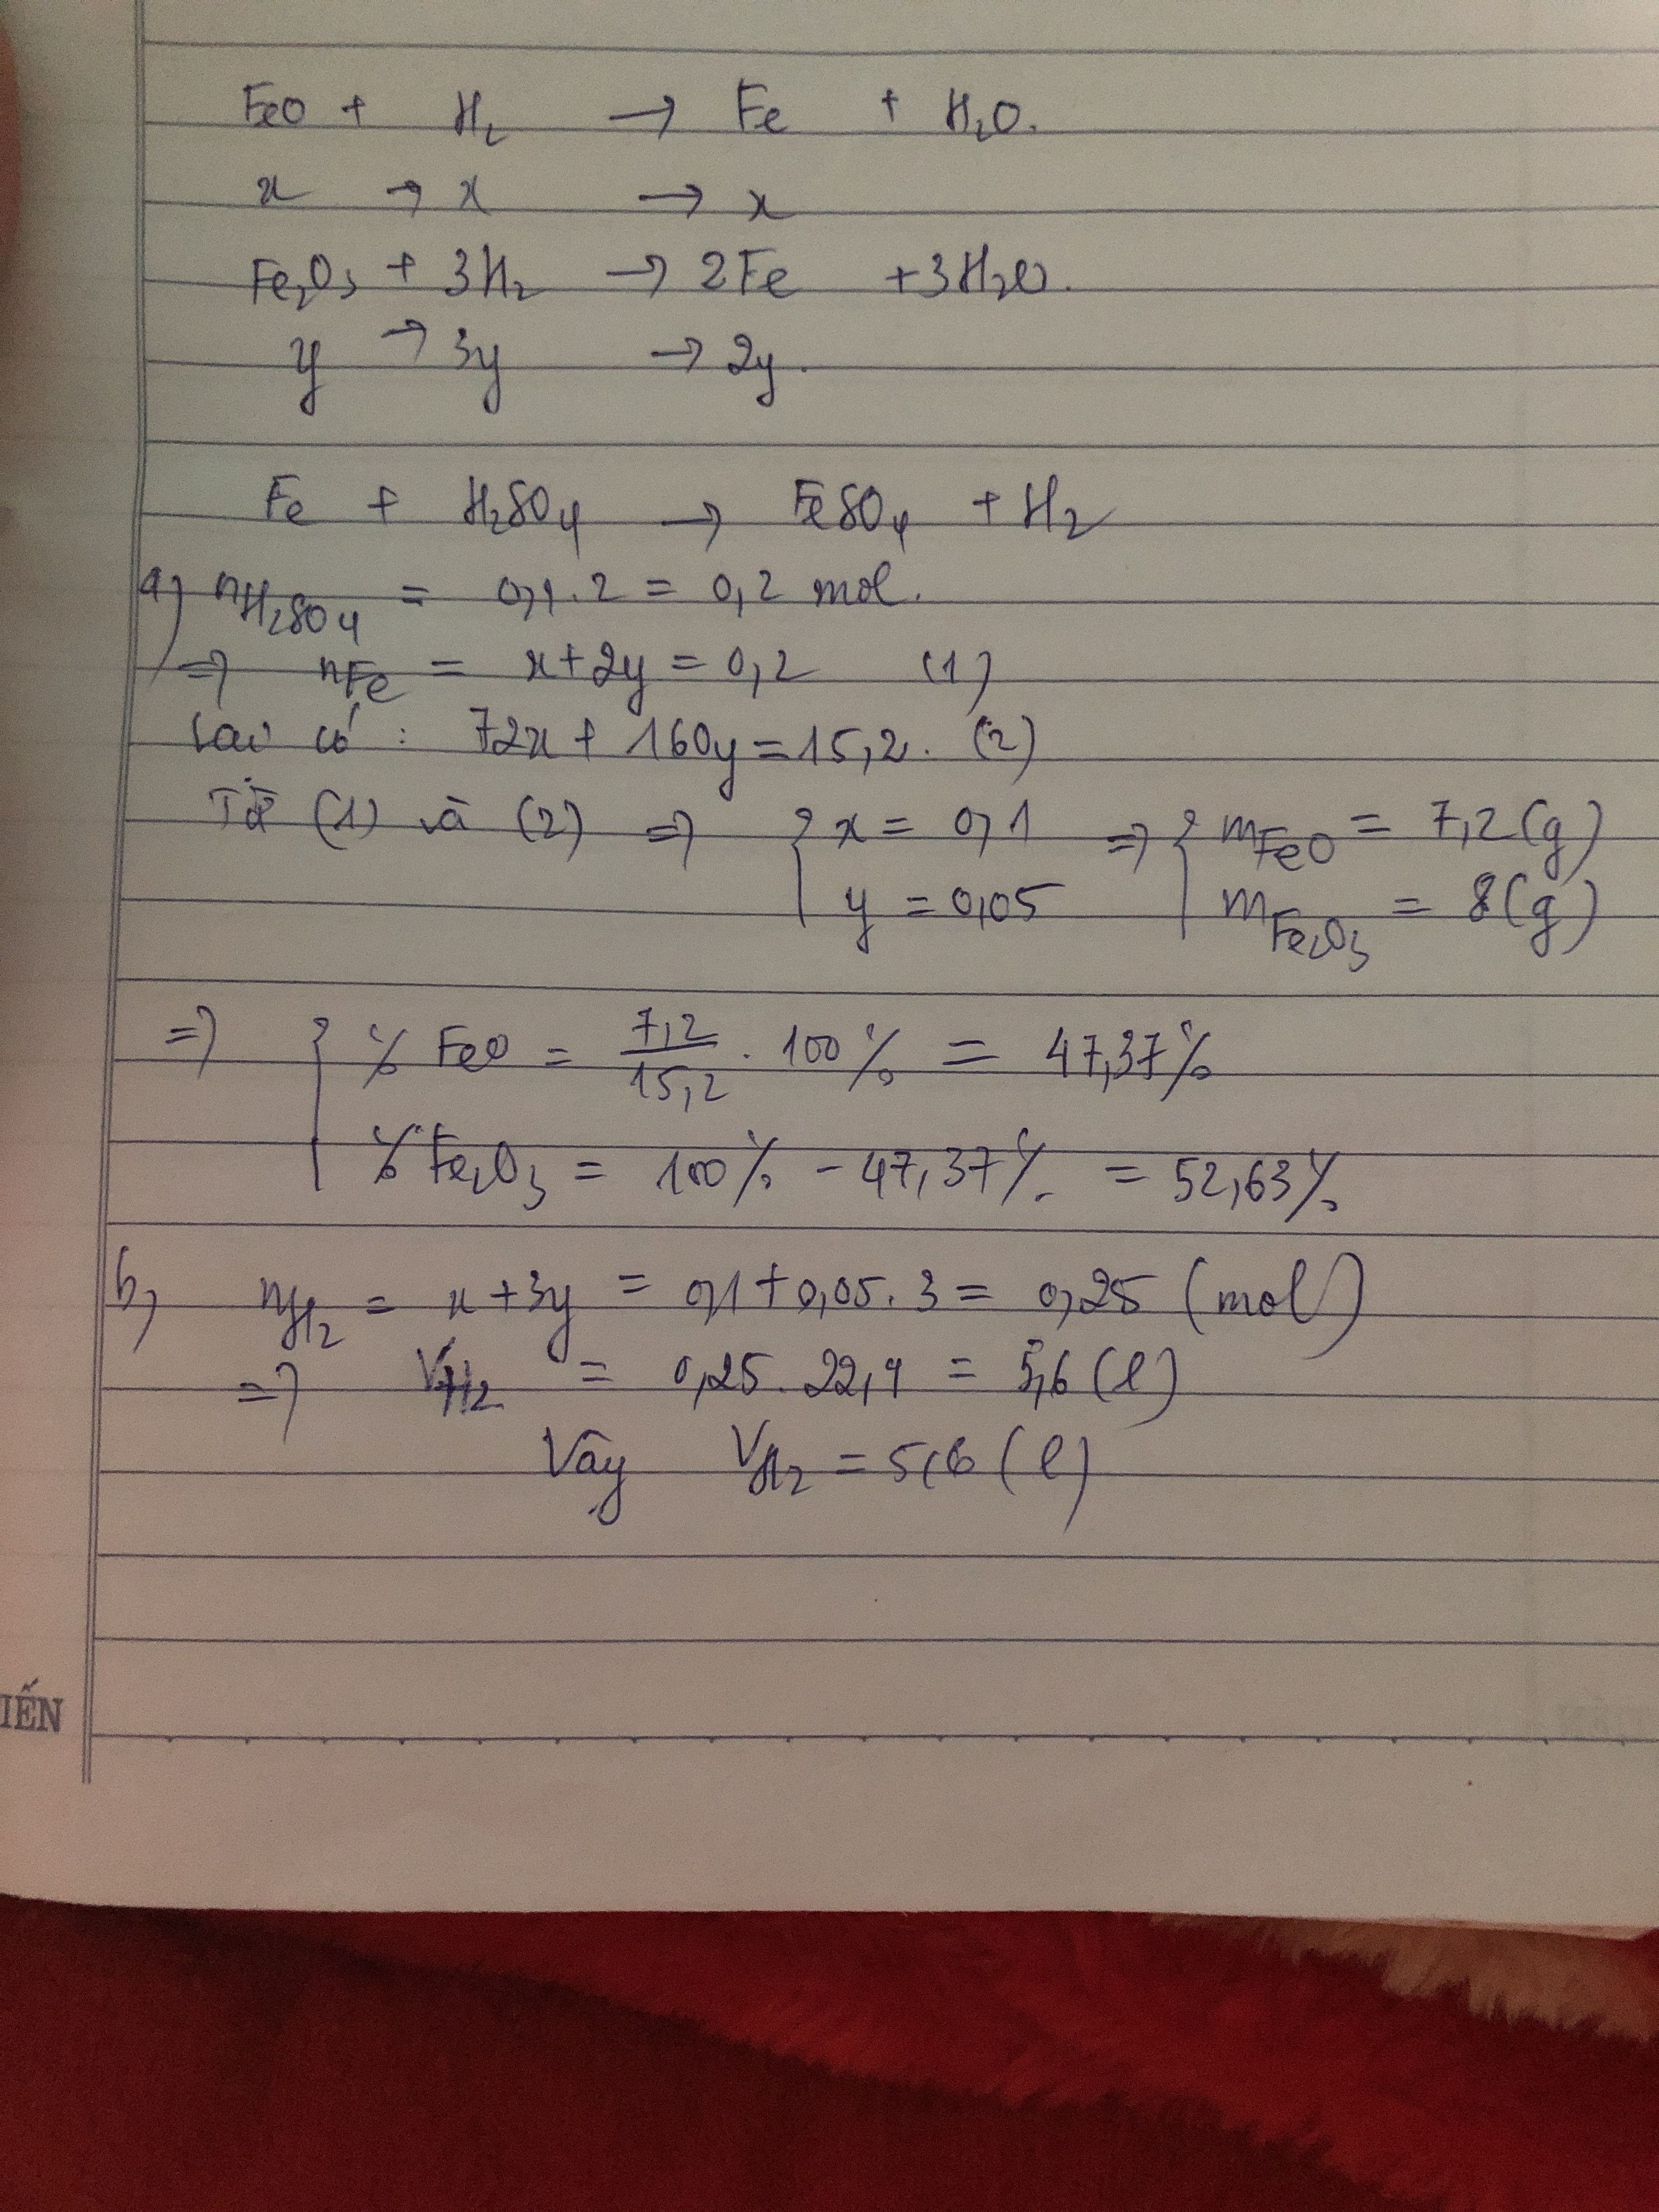 FeO + H₂ → Fe + H₂O.
x → x → x
Fe₂O₃ + 3H₂ → 2Fe + 3H₂O.
y → 3y → 2y.
Fe + H₂SO₄ → FeSO₄ + H₂
a) nH₂SO₄ = 0,1.2 = 0,2 mol.
=> nFe = x+2y = 0,2 (1)
Lại có : 72x + 160y = 15,2. (2)
Từ (1) và (2) => { x = 0,1 => { mFeO = 7,2 (g)
y = 0,05 mFe₂O₃ = 8 (g)
=> { % FeO = 7,2/15,2 . 100% = 47,37%
% Fe₂O₃ = 100% - 47,37% = 52,63%
b, nH₂ = x+3y = 0,1+0,05.3 = 0,25 (mol)
=> VH₂ = 0,25.22,4 = 5,6 (l)
Vậy VH₂ = 5,6 (l)
IẾN